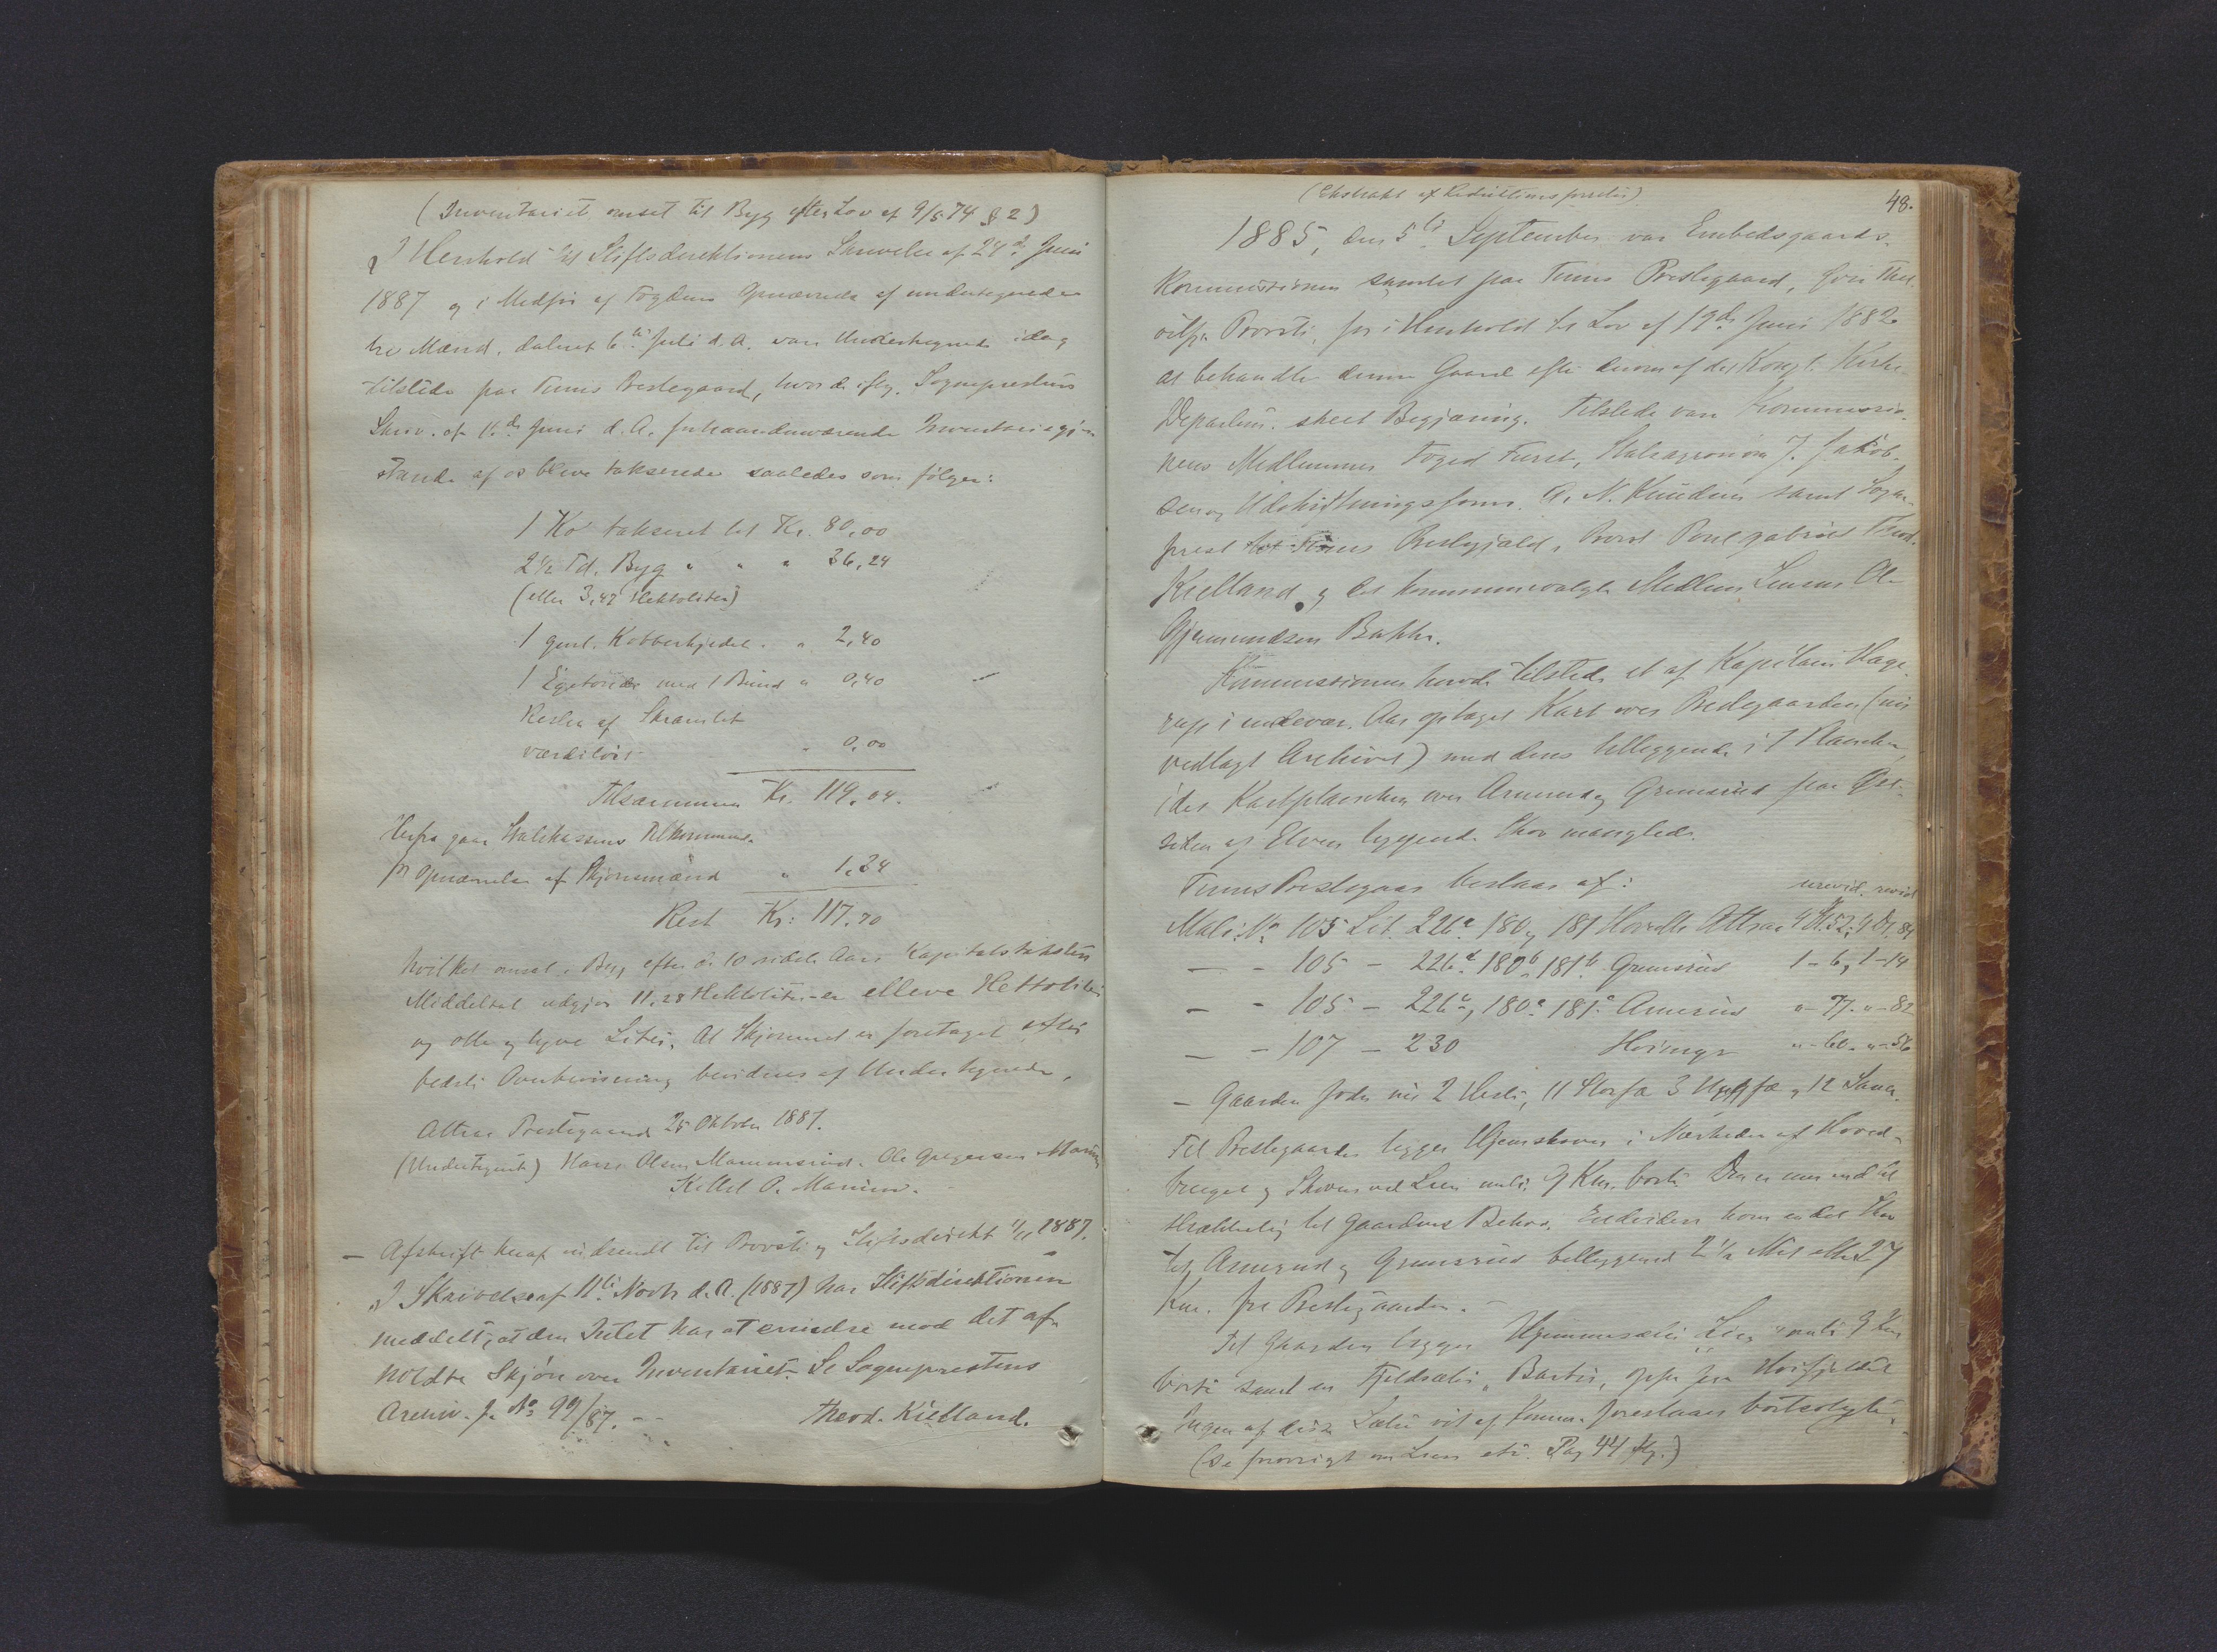 (Inventariet omsat til Byg efter Lov af 9/5 74 § 2)
I Henhold til Stiftsdirektionens Skrivelse af 24de Juni
1887 og i Medfør af Fogdens Opnævnelse af undertegnede
tre Mænd, dateret 6te Juli d. A. vare Undertegnede idag
tilstede paa Finnes Prestegaard, hvor de ifølg. Sogneprestens
Skriv. af Juni d. A. forhaandenværende Inventariegjen-
stande af os bleve takserede saaledes som følger:
1 Ko takseret til Kr. 80,00
2½ Td. Byg " " " 36,24
(eller 3,47 Hektoliter)
1 gml. Kobberkjedel " " 2,40
1 Egetønde med 1 Bund " 0,40
Rester af Skramlet
værdiløst " 0,00
Tilsammen Kr. 119,04.
Herfra gaar Statskassens Tilkommende
for Opnævnelse af Skjønsmænd " 1,34
Rest Kr: 117.70
hvilket omsat i Byg efter de 10 sidste Aars Kapitelstaksters
Middeltal udgjør 11,28 Hektoliter - er elleve Hektoliter
og otte og tyve Liter. At Skjønnet er foretaget efter
bedste Overbevisning bevidnes af Undertegnede.
Attraa Prestegaard 25 Oktober 1887.
(Undertegnet) Hans Olsen Ole Gregersen
Kittel O.
— Afskrift heraf indsendt til Provsti og Stiftsdirekt 1/11 1887.
"I Skrivelse af 11te Novbr d. A. (1887) har Stiftsdirektionen
meddelt, at den Intet har at erindre mod det af-
holdte Skjøn over Inventariet. Se Sogneprestens
Archiv. J. No 99/87. — Theod. Kielland.
(Ekstrakt af Reduktionsforretn.) 48.
1885, den 5te September var Embedsgaards-
Kommissionen samlet paa Finnes Prestegaard, Øvre
Provsti, for i Henhold til Lov af 19de Juni 1882
at behandle denne Gaard efter derom af det Kongl. Kirke-
Departem. skeet Begjæring. Tilstede vare Kommissio-
nens Medlemmer Foged Furst, Statsagronom J. Jakob-
sen og Udskiftningsform. A. N. Knudsen samt Sogne-
prest til Prestegjæld, Provst Poul Gabriel Theod.
Kielland og det kommunevalgte Medlem Ole
Gjermundsen Bakke.
Kommissionen havde tilstede et af Kapitain
i indevær. Aar optaget Kart over Prestegaarden (nu
vedlagt Archivet) med dens tilliggende i 7 Plancher
idet Kartplanchen over Amerud og Grimsrud paa Øst-
siden af Elven liggende Skov manglede.
Finnes Prestegaar bestaar af: urevid. revid
Matr. No 105 Lit. 226a. 180 og 181 Hovedb. Attraa 4 D. 52; 4 D. 84
— - 105 — 226d. 180b 181b Grimsrud 1 - 6, 1 - 14
— - 105 — 226c, 180c 181c Amerud " - 77. " - 82
— - 107 — 230 " - 60. " - 56
— Gaarden føder nu 2 Heste, 11 Storfæ 3 Ungfæ og 12 Sauer.
Til Prestegaarden ligger Hjemskoven i Nærheden af Hoved-
bruget og Skoven ved Lien omtr. 9 Klm. borte. Den er mer end til-
strækkelig til Gaardens Behov. Endvidere kom en del Skov
til Amerud og Grimsrud beliggende 2½ Mil eller 27
Km. fra Prestegaarden. —
Til Gaarden ligger Hjemmesæter "Lien" omtr 9 Km
borte samt en Fjeldsæter, oppe paa
Ingen af disse Sætre vil af Komm. foreslaaes bortsolgte.
(Se forøvrigt om Lien etc. Pag 44 flg.)